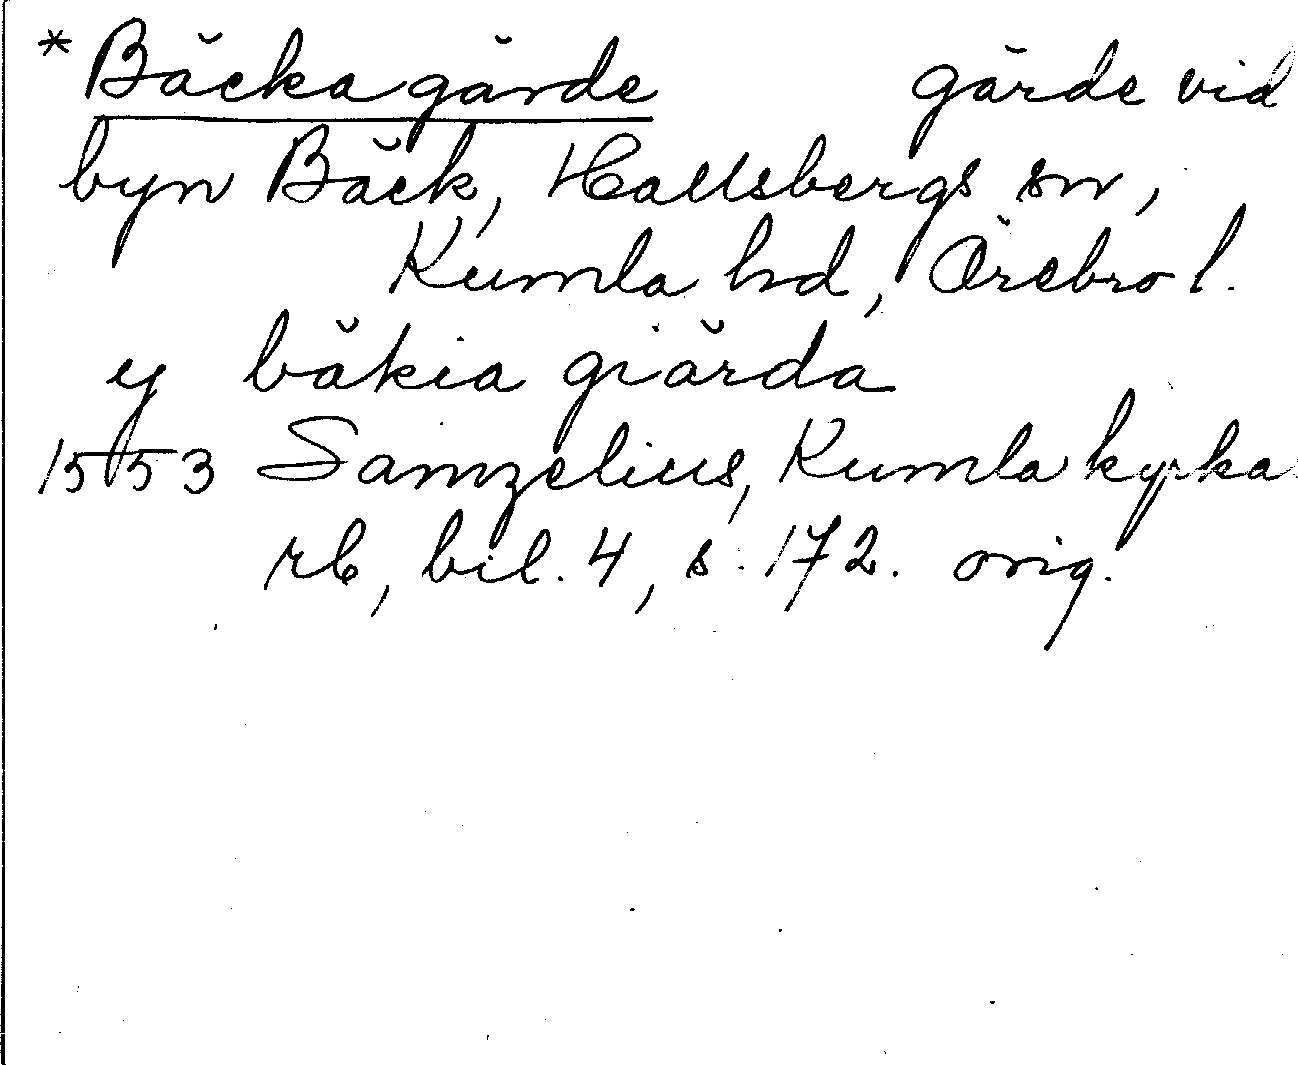 *Bäckagärde gärde vid
byn Bäck, Hallsbergs sn,
Kumla hd, Örebro l.
y bäkia giärda
1553 Samzelius, Kumla kyrka
rb, bil. 4, s. 172. orig.